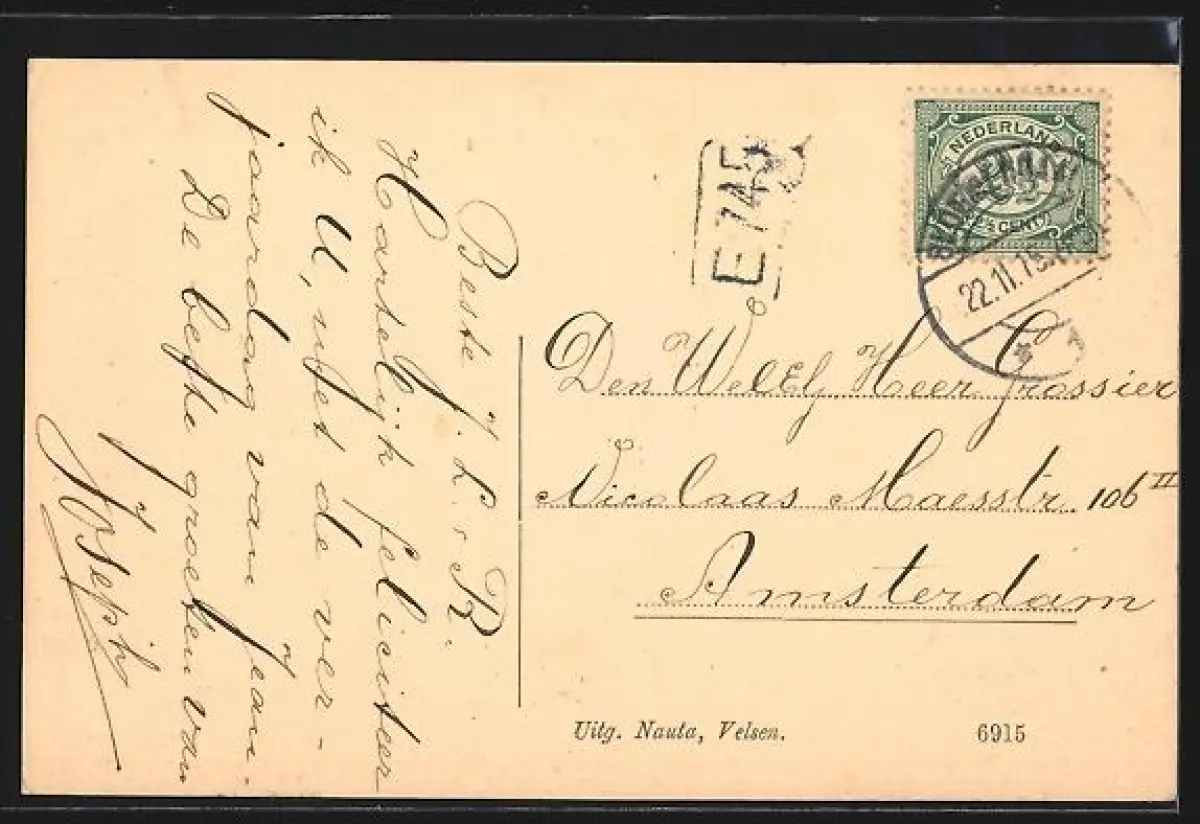 Beste J. L. & R.
Hartelijk feliciteer
ik U, met de ver-
jaardag van Jean.
De beste groeten van
Joseph
E 745
NEDERLAND
2½ CENT
22.11.15
Den WelEg. Heer Grossier
Nicolaas Maesstr. 106 III
Amsterdam
Uitg. Nauta, Velsen.
6915